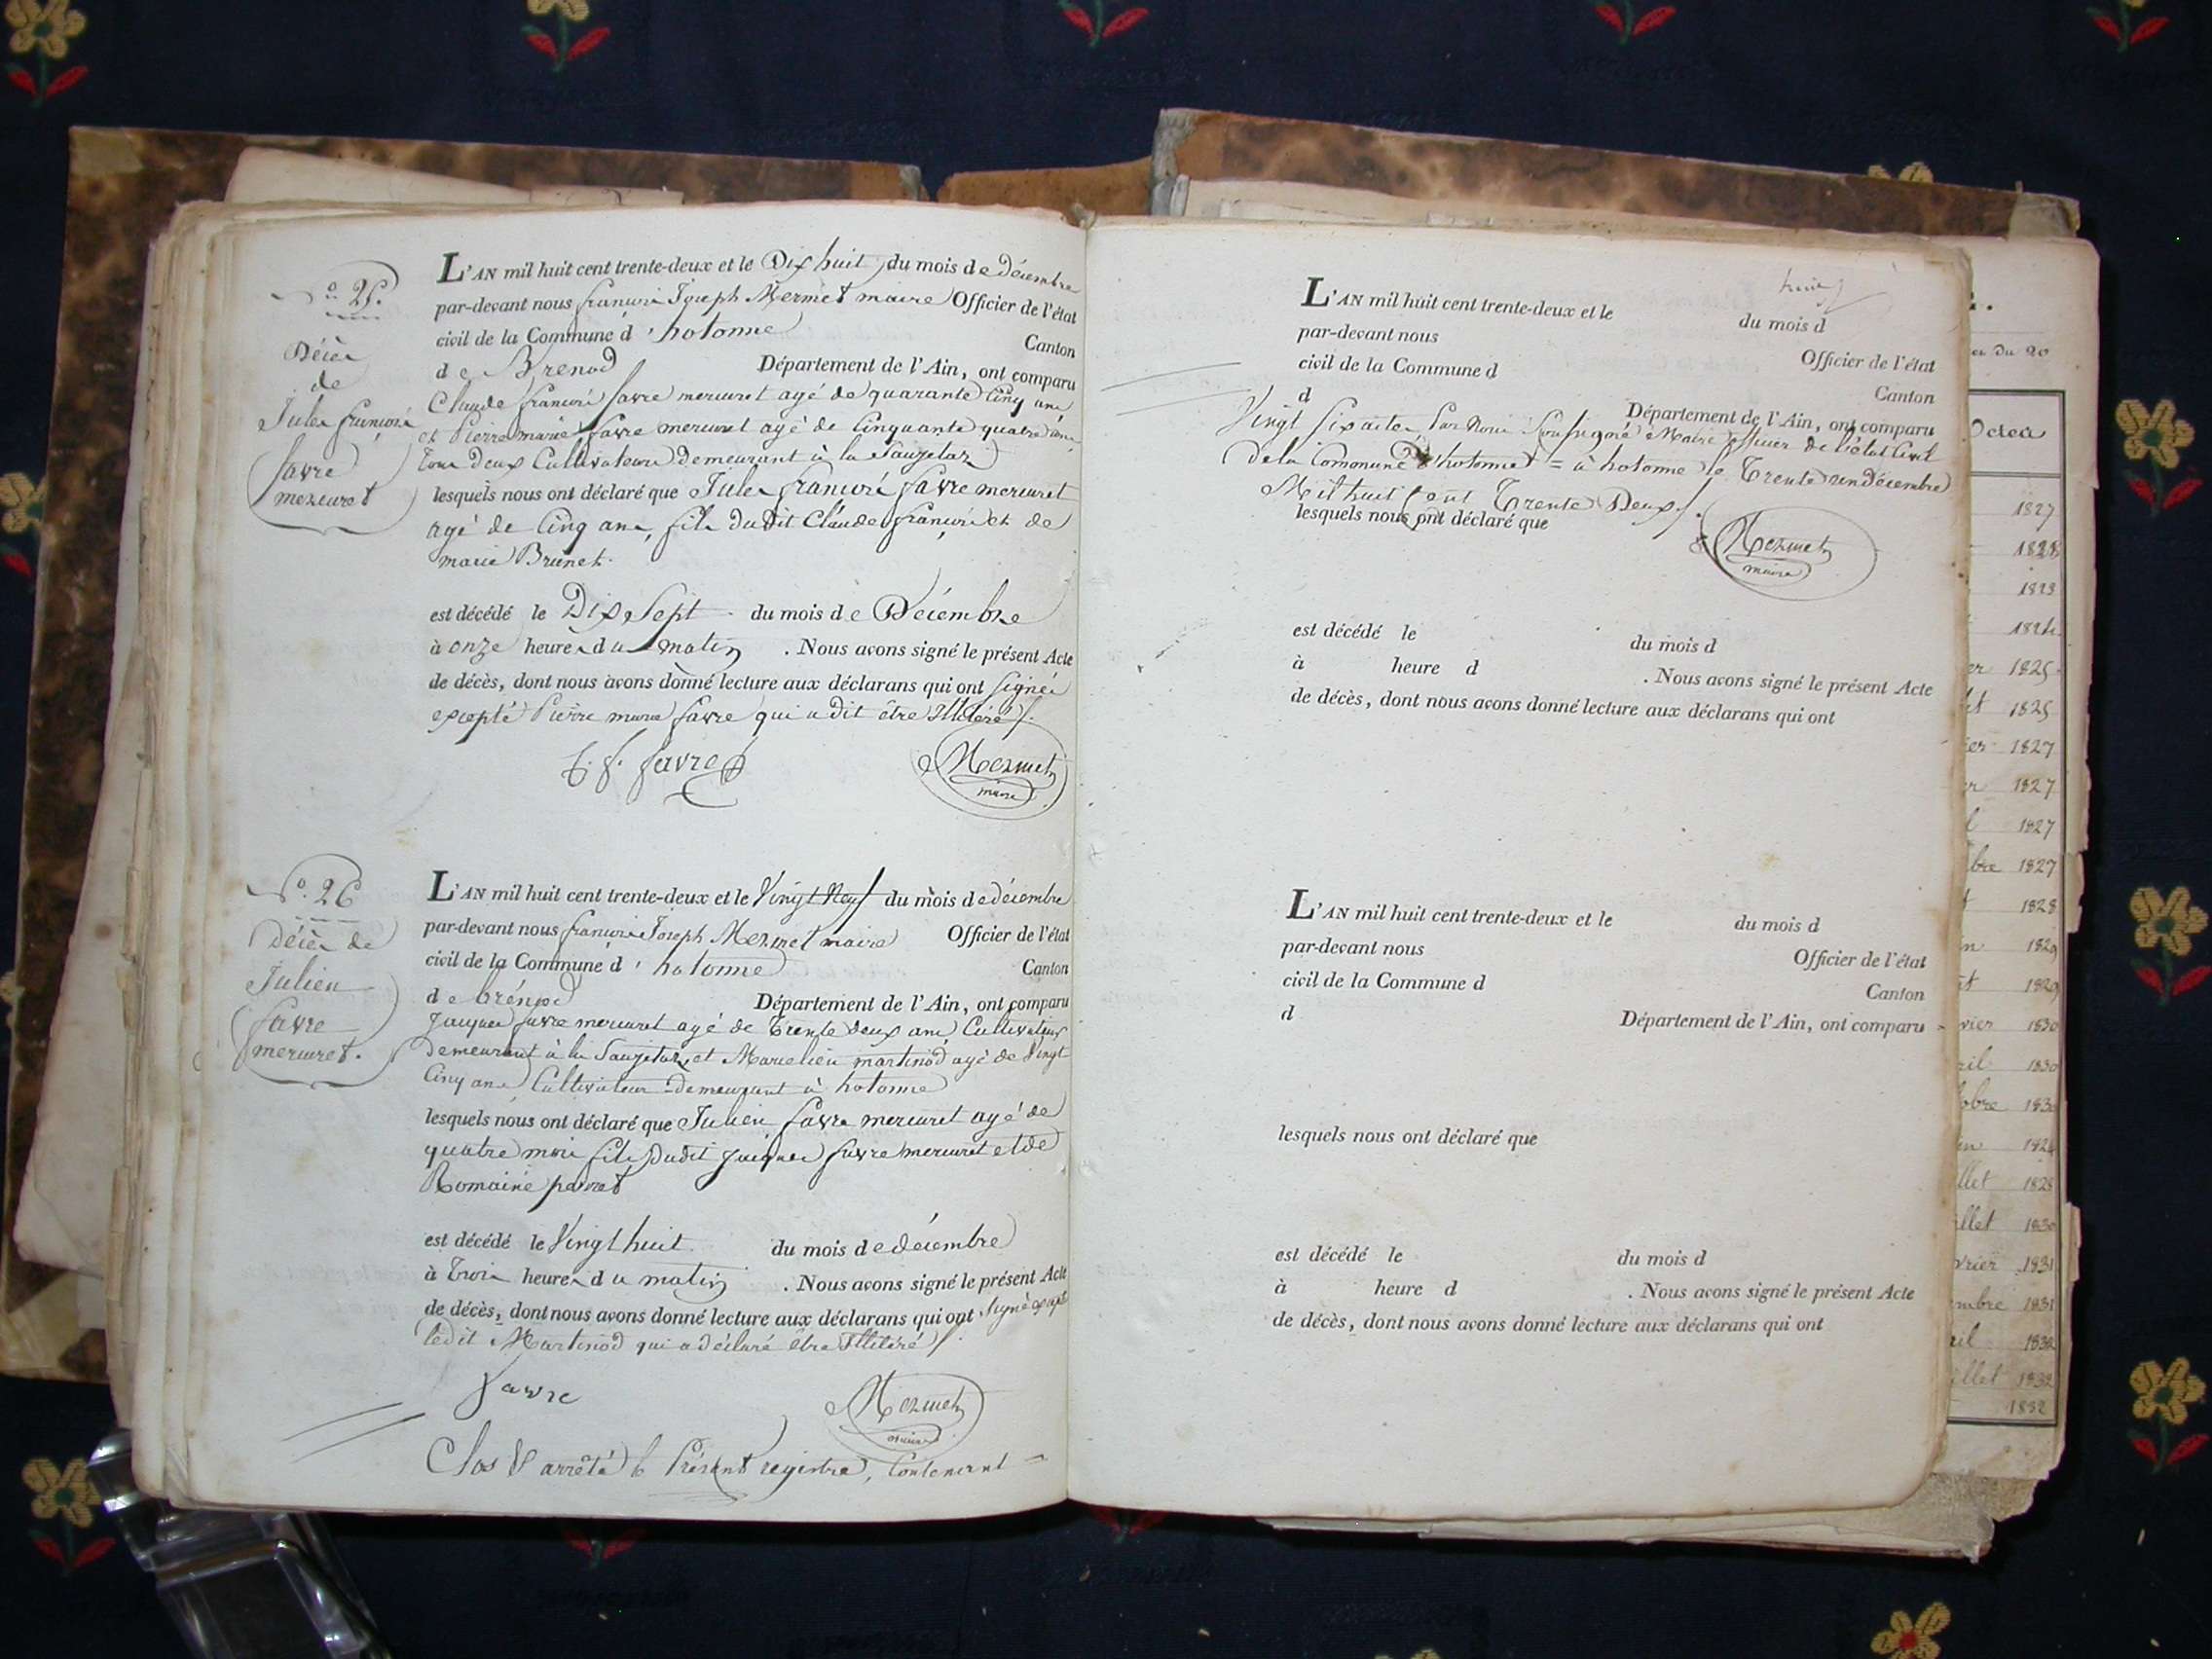 N.° 25.
Décès
de
Jules françois
favre
mercuret
L'AN mil huit cent trente-deux et le Dix huit du mois de Décembre
par-devant nous françois Joseph Mermet maire Officier de l'état
civil de la Commune d'hotonne Canton
de Brenod Département de l'Ain, ont comparu
Claude françois favre mercuret agé de quarante Cinq ans
et Pierre marie favre mercuret agé de Cinquante quatre ans
tous deux Cultivateurs demeurant à la Saugelaz
lesquels nous ont déclaré que Jules françois favre mercuret
agé de Cinq ans, fils dudit Claude françois et de
marie Brunet.
est décédé le Dix Sept du mois de Décembre
à onze heures du matin . Nous avons signé le présent Acte
de décès, dont nous avons donné lecture aux déclarans qui ont signés
excepté Pierre marie favre qui a dit être Illitéré
C. f. favre
Mermet
maire
N.° 26
Décès de
Julien
favre
mercuret.
L'AN mil huit cent trente-deux et le Vingt Neuf du mois de décembre
par-devant nous françois Joseph Mermet maire Officier de l'état
civil de la Commune d'hotonne Canton
de brénod Département de l'Ain, ont comparu
Jacques favre mercuret agé de trente deux ans Cultivateur
demeurant à la Saugelaz et Marcelin martinod agé de Vingt
Cinq ans Cultivateur demeurant à hotonne
lesquels nous ont déclaré que Julien favre mercuret agé de
quatre mois fils dudit jacques favre mercuret et de
Romaine
est décédé le Vingt huit du mois de décembre
à trois heures du matin . Nous avons signé le présent Acte
de décès, dont nous avons donné lecture aux déclarans qui ont signé excepté
ledit Martinod qui a déclaré être Illitéré
favre
Mermet
maire
Clos & arrêté le Présent registre, Contenant
L'AN mil huit cent trente-deux et le du mois d
par-devant nous Officier de l'état
civil de la Commune d Canton
d Département de l'Ain, ont comparu
Vingt Six actes Par Nous Soussigné Maire officier de l'état Civil
de la Commune d'hotonne = à hotonne le Trente un décembre
Mil huit Cent Trente Deux.
lesquels nous ont déclaré que
Mermet
maire
est décédé le du mois d
à heure d . Nous avons signé le présent Acte
de décès, dont nous avons donné lecture aux déclarans qui ont
L'AN mil huit cent trente-deux et le du mois d
par-devant nous Officier de l'état
civil de la Commune d Canton
d Département de l'Ain, ont comparu
lesquels nous ont déclaré que
est décédé le du mois d
à heure d . Nous avons signé le présent Acte
de décès, dont nous avons donné lecture aux déclarans qui ont
du 20
1827
1823
1824
1825
1825
1827
1827
1827
bre 1827
1828
1829
1829
1830
1830
1830
llet 1828
llet 1830
vrier 1831
mbre 1831
1832
illet 1832
1832